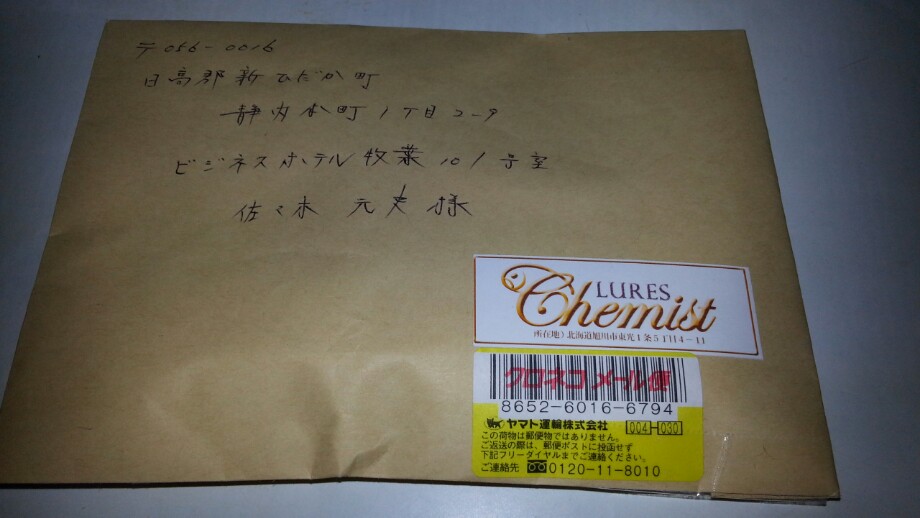 〒056-0016
日高郡新ひだか町
静内本町1丁目2-9
ビジネスホテル牧葉101号室
佐々木 元史 様
LURES
Chemist
所在地）北海道旭川市東光1条5丁目4-11
クロネコメール便
8652-6016-6794
ヤマト運輸株式会社 004-030
この荷物は郵便物ではありません。
ご返送の際は、郵便ポストに投函せず
下記フリーダイヤルまでご連絡ください。
ご連絡先 0120-11-8010